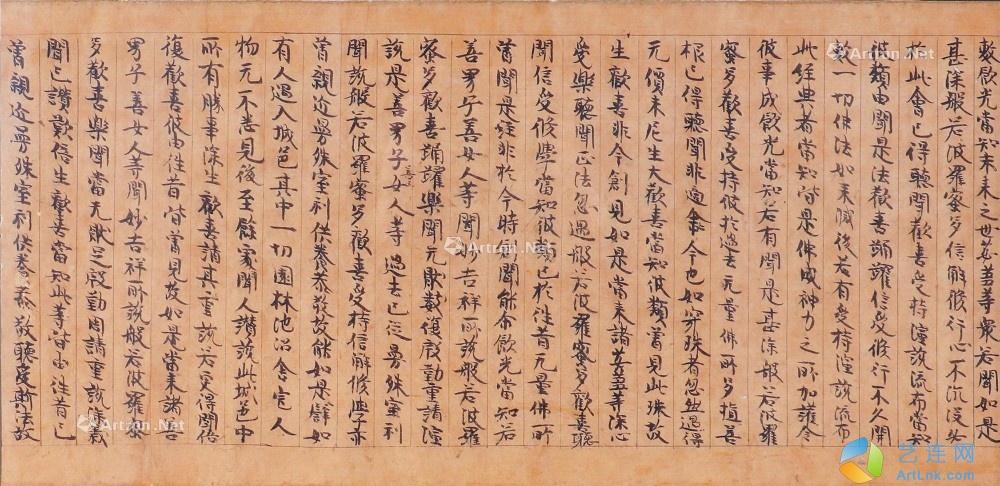 數飲光當知未來之世苾芻等眾若聞如是
甚深般若波羅蜜多信解修行心不沉沒必
於此會已得聽聞歡喜受持演說流布當知
彼類由聞是法歡喜踊躍信受修行不久開
敷一切佛法如來滅後若有受持演說流布
此經典者當知皆是佛威神力之所加護令
彼事成飲光當知若有聞是甚深般若波羅
蜜多歡喜受持彼於過去无量佛所多植善
根已得聽聞非適今也如穿珠者忽然遇得
元價末尼生大歡喜當知彼類曾見此珠故
生歡喜非今創見如是當來諸苾芻等深心
愛樂聽聞正法忽遇般若波羅蜜多歡喜聽
聞信受修學當知彼類已於往昔无量佛所
曾聞是經非於今時創聞能尒飲光當知若
善男子善女人等聞妙吉祥所說般若波羅
蜜多歡喜踊躍樂聞无猒數復慇勤重請演
說是善男子善女人等過去已從曼殊室利
聞說般若波羅蜜多歡喜受持信解修學亦
曾親近曼殊室利供養恭敬故能如是譬如
有人遇入城邑其中一切園林池沼舍宅人
物元不悉見後至餘處聞人讚說此城邑中
所有勝事深生歡喜請其重說若更得聞倍
復歡喜彼由往昔皆曾見故如是當來諸善
男子善女人等聞妙吉祥所說般若波羅蜜
多歡喜樂聞當无猒足慇勤固請重說深義
聞已讚歎倍生歡喜當知此等皆由往昔已
曾親近曼殊室利供養恭敬聽受斯法故
Artron.Net
艺连网
ArtLnk.com